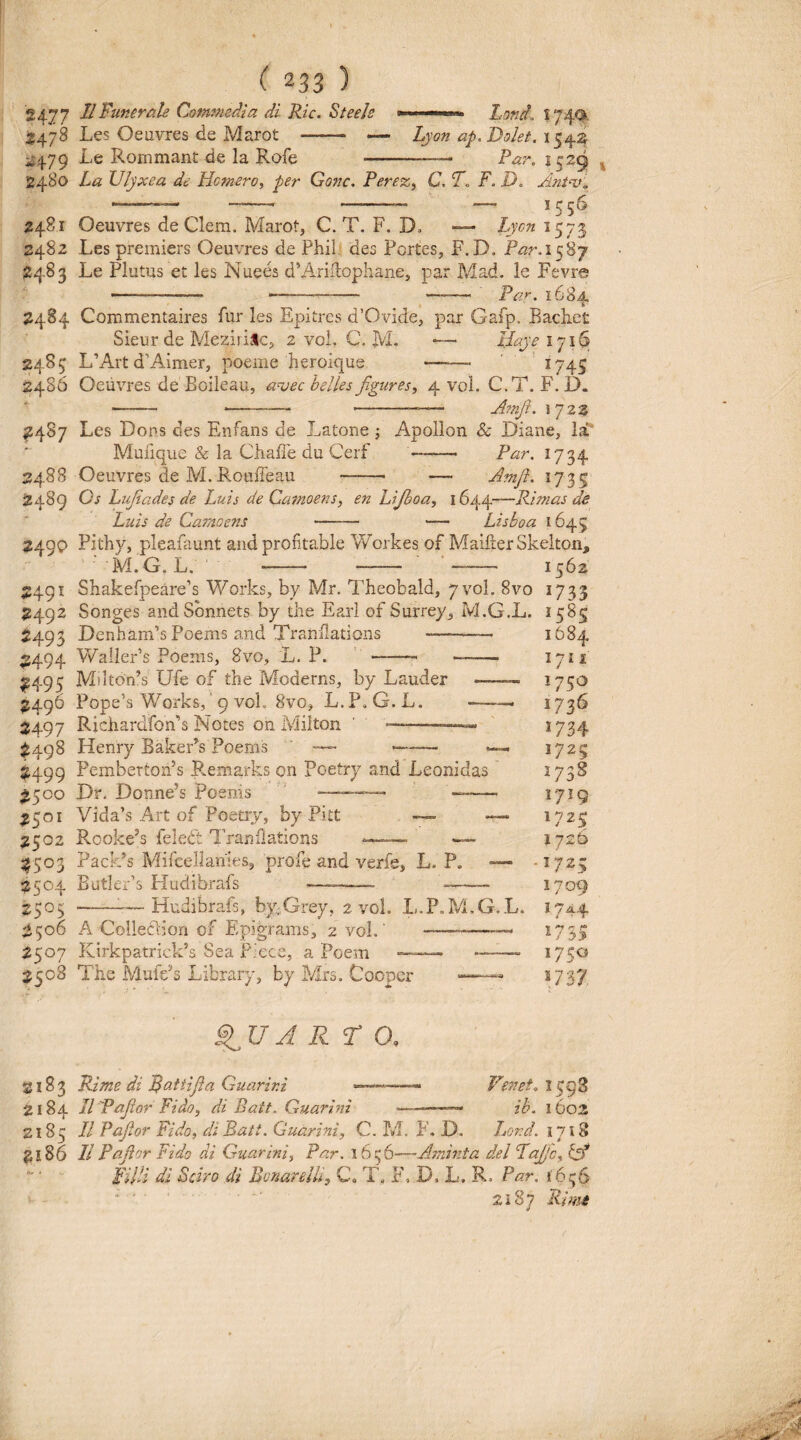 ( 233 )
2477 Il Funerale Commedia di Ric. Steele ——— Lond. 1740
2478 Les Oeuvres de Marot —— — Lyon ap. Dolet. 1542
2479 Le Rommant de la Rose ——— Par. 1529
2480 La Ulyxea de Homero, per Gonc. Perez, C. T. F. D. Antv.
—— —— —— — 1556
2481 Oeuvres de Clem. Marot, C. T. F. D. — Lyon 1573
2482 Les premiers Oeuvres de Phil des Portes, F. D. Par. 1587
2483 Le Plutus et les Nueés d'Aristophane, par Mad. le Fevre
—— —— —— Par. 1684
2484 Commentaires sur les Epitres d'Ovide, par Gasp. Bachet
Sieur de Meziriac, 2 vol. C. M. — Haye 1716
2485 L'Art d'Aimer, poeme heroique —— 1745
2486 Oeuvres de Boileau, avec belles figures, 4 vol. C. T. F. D.
—— —— —— Amst. 1722
2487 Les Dons des Enfans de Latone ; Apollon & Diane, la
Musique & la Chasse du Cerf —— Par. 1734
2488 Oeuvres de M. Rousseau —— — Amst. 1735
2489 Os Lusiades de Luis de Camoens, en Lisboa, 1644—Rimas de
Luis de Camoens —— — Lisboa 1645
2490 Pithy, pleasaunt and profitable Workes of Maister Skelton,
M. G. L. —— —— —— 1562
2491 Shakespeare's Works, by Mr. Theobald, 7 vol. 8vo 1733
2492 Songes and Sonnets by the Earl of Surrey, M.G.L. 1585
2493 Denham's Poems and Translations —— 1684
2494 Waller's Poems, 8vo, L. P. —— —— 1711
2495 Milton's Use of the Moderns, by Lauder —— 1750
2496 Pope's Works, 9 vol. 8vo, L. P. G. L. —— 1736
2497 Richardson's Notes on Milton —— 1734
2498 Henry Baker's Poems — —— — 1725
2499 Pemberton's Remarks on Poetry and Leonidas 1738
2500 Dr. Donne's Poems —— —— 1719
2501 Vida's Art of Poetry, by Pitt — — 1725
2502 Rooke's select Translations —— — 1726
2503 Pack's Miscellanies, prose and verse, L. P. — 1725
2504 Butler's Hudibrass —— —— 1709
2505 —— Hudibrass, by Grey, 2 vol. L. P. M. G. L. 1744
2506 A Collection of Epigrams, 2 vol. —— 1735
2507 Kirkpatrick's Sea Piece, a Poem —— —— 1750
2508 The Muse's Library, by Mrs. Cooper —— 1737
QUARTO.
2183 Rime di Battista Guarini —— Venet. 1598
2184 Il Pastor Fido, di Batt. Guarini —— ib. 1602
2185 Il Pastor Fido, di Batt. Guarini, C. M. F. D. Lond. 1718
2186 Il Pastor Fido di Guarini, Par. 1656—Aminta del Tasso, &
Filli di Sciro di Bonarelli, C. T. F. D. L. R. Par. 1656
2187 Rime